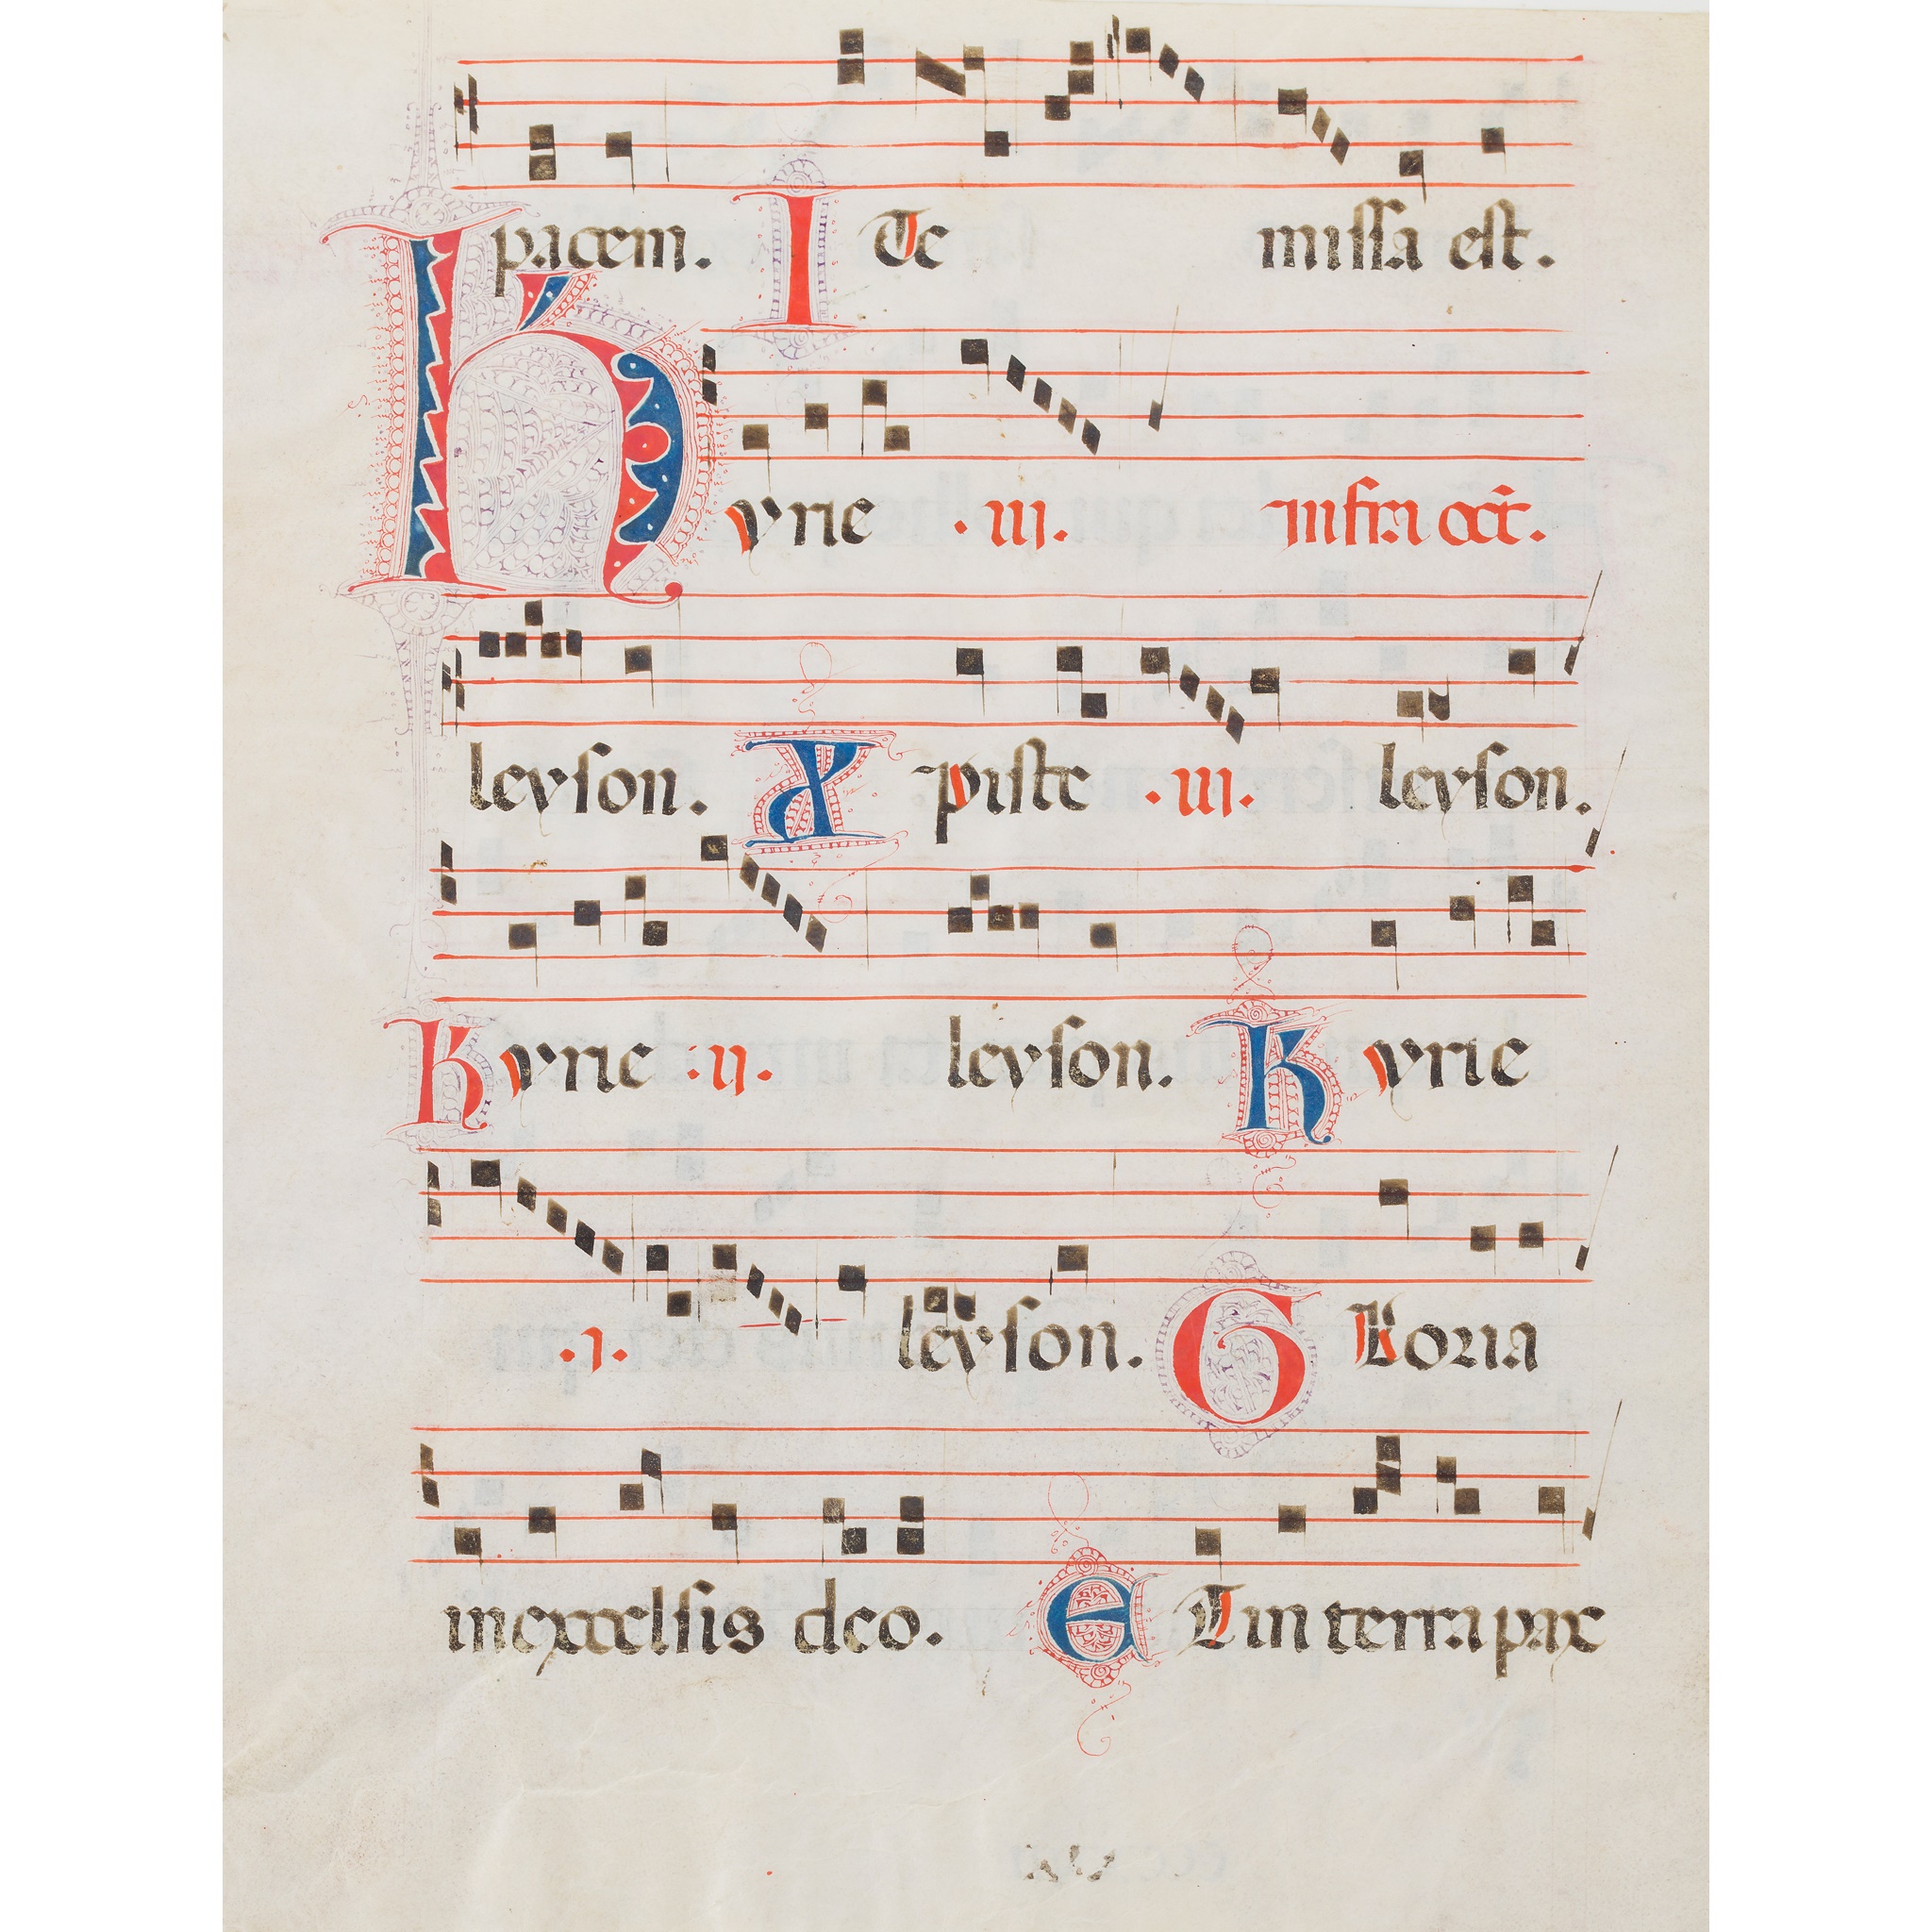 pacem. I Te missa est.
Kyrie .iii. Infra oct.
leyson. Xpiste .iii. leyson.
Kyrie .ii. leyson. Kyrie
.i. leyson. Gloria
in excelsis deo. ET in terra pax